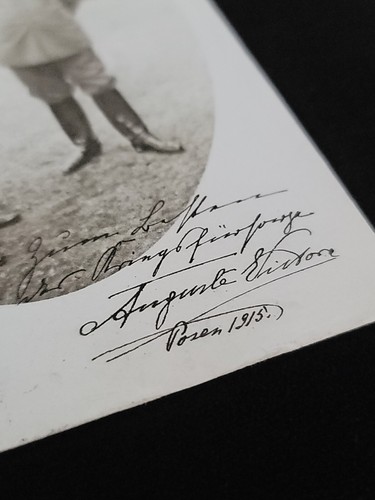 Zum Besten
der Kriegsfürsorge
Auguste Victoria
Posen 1915.